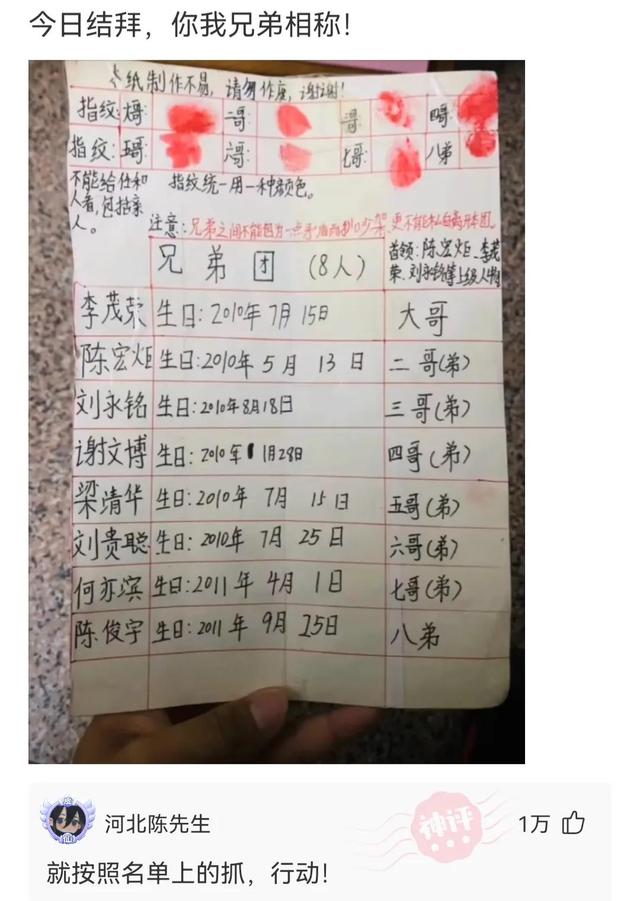 今日结拜，你我兄弟相称！
本纸制作不易，请勿作废，谢谢！
指纹: 大哥: 二哥: 三哥: 四哥:
指纹: 五哥: 六哥: 七哥: 八弟
不能给任何人看，包括亲人。
指纹统一用一种颜色。
注意: 兄弟之间不能因为一点 吵架 更不能私自离开本团.
兄弟团 (8人)
首领: 陈宏炬、李茂荣、刘永铭等上级人物
李茂荣 生日: 2010年7月15日 大哥
陈宏炬 生日: 2010年5月13日 二哥(弟)
刘永铭 生日: 2010年8月18日 三哥(弟)
谢文博 生日: 2010年 1月28日 四哥(弟)
梁靖华 生日: 2010年 7月 15日 五哥(弟)
刘贵聪 生日: 2010年 7月 25日 六哥(弟)
何亦滨 生日: 2011年 4月 1日 七哥(弟)
陈俊宇 生日: 2011年 9月 15日 八弟
河北陈先生
神评
1万
就按照名单上的抓，行动！